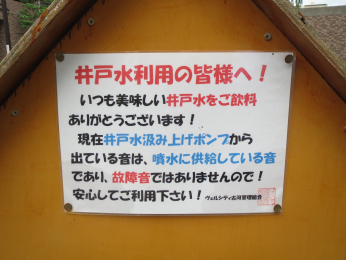 井戸水利用の皆様へ！
いつも美味しい井戸水をご飲料
ありがとうございます！
現在井戸水汲み上げポンプから
出ている音は、噴水に供給している音
であり、故障音ではありませんので！
安心してご利用下さい！ ヴェルシティ古河管理組合